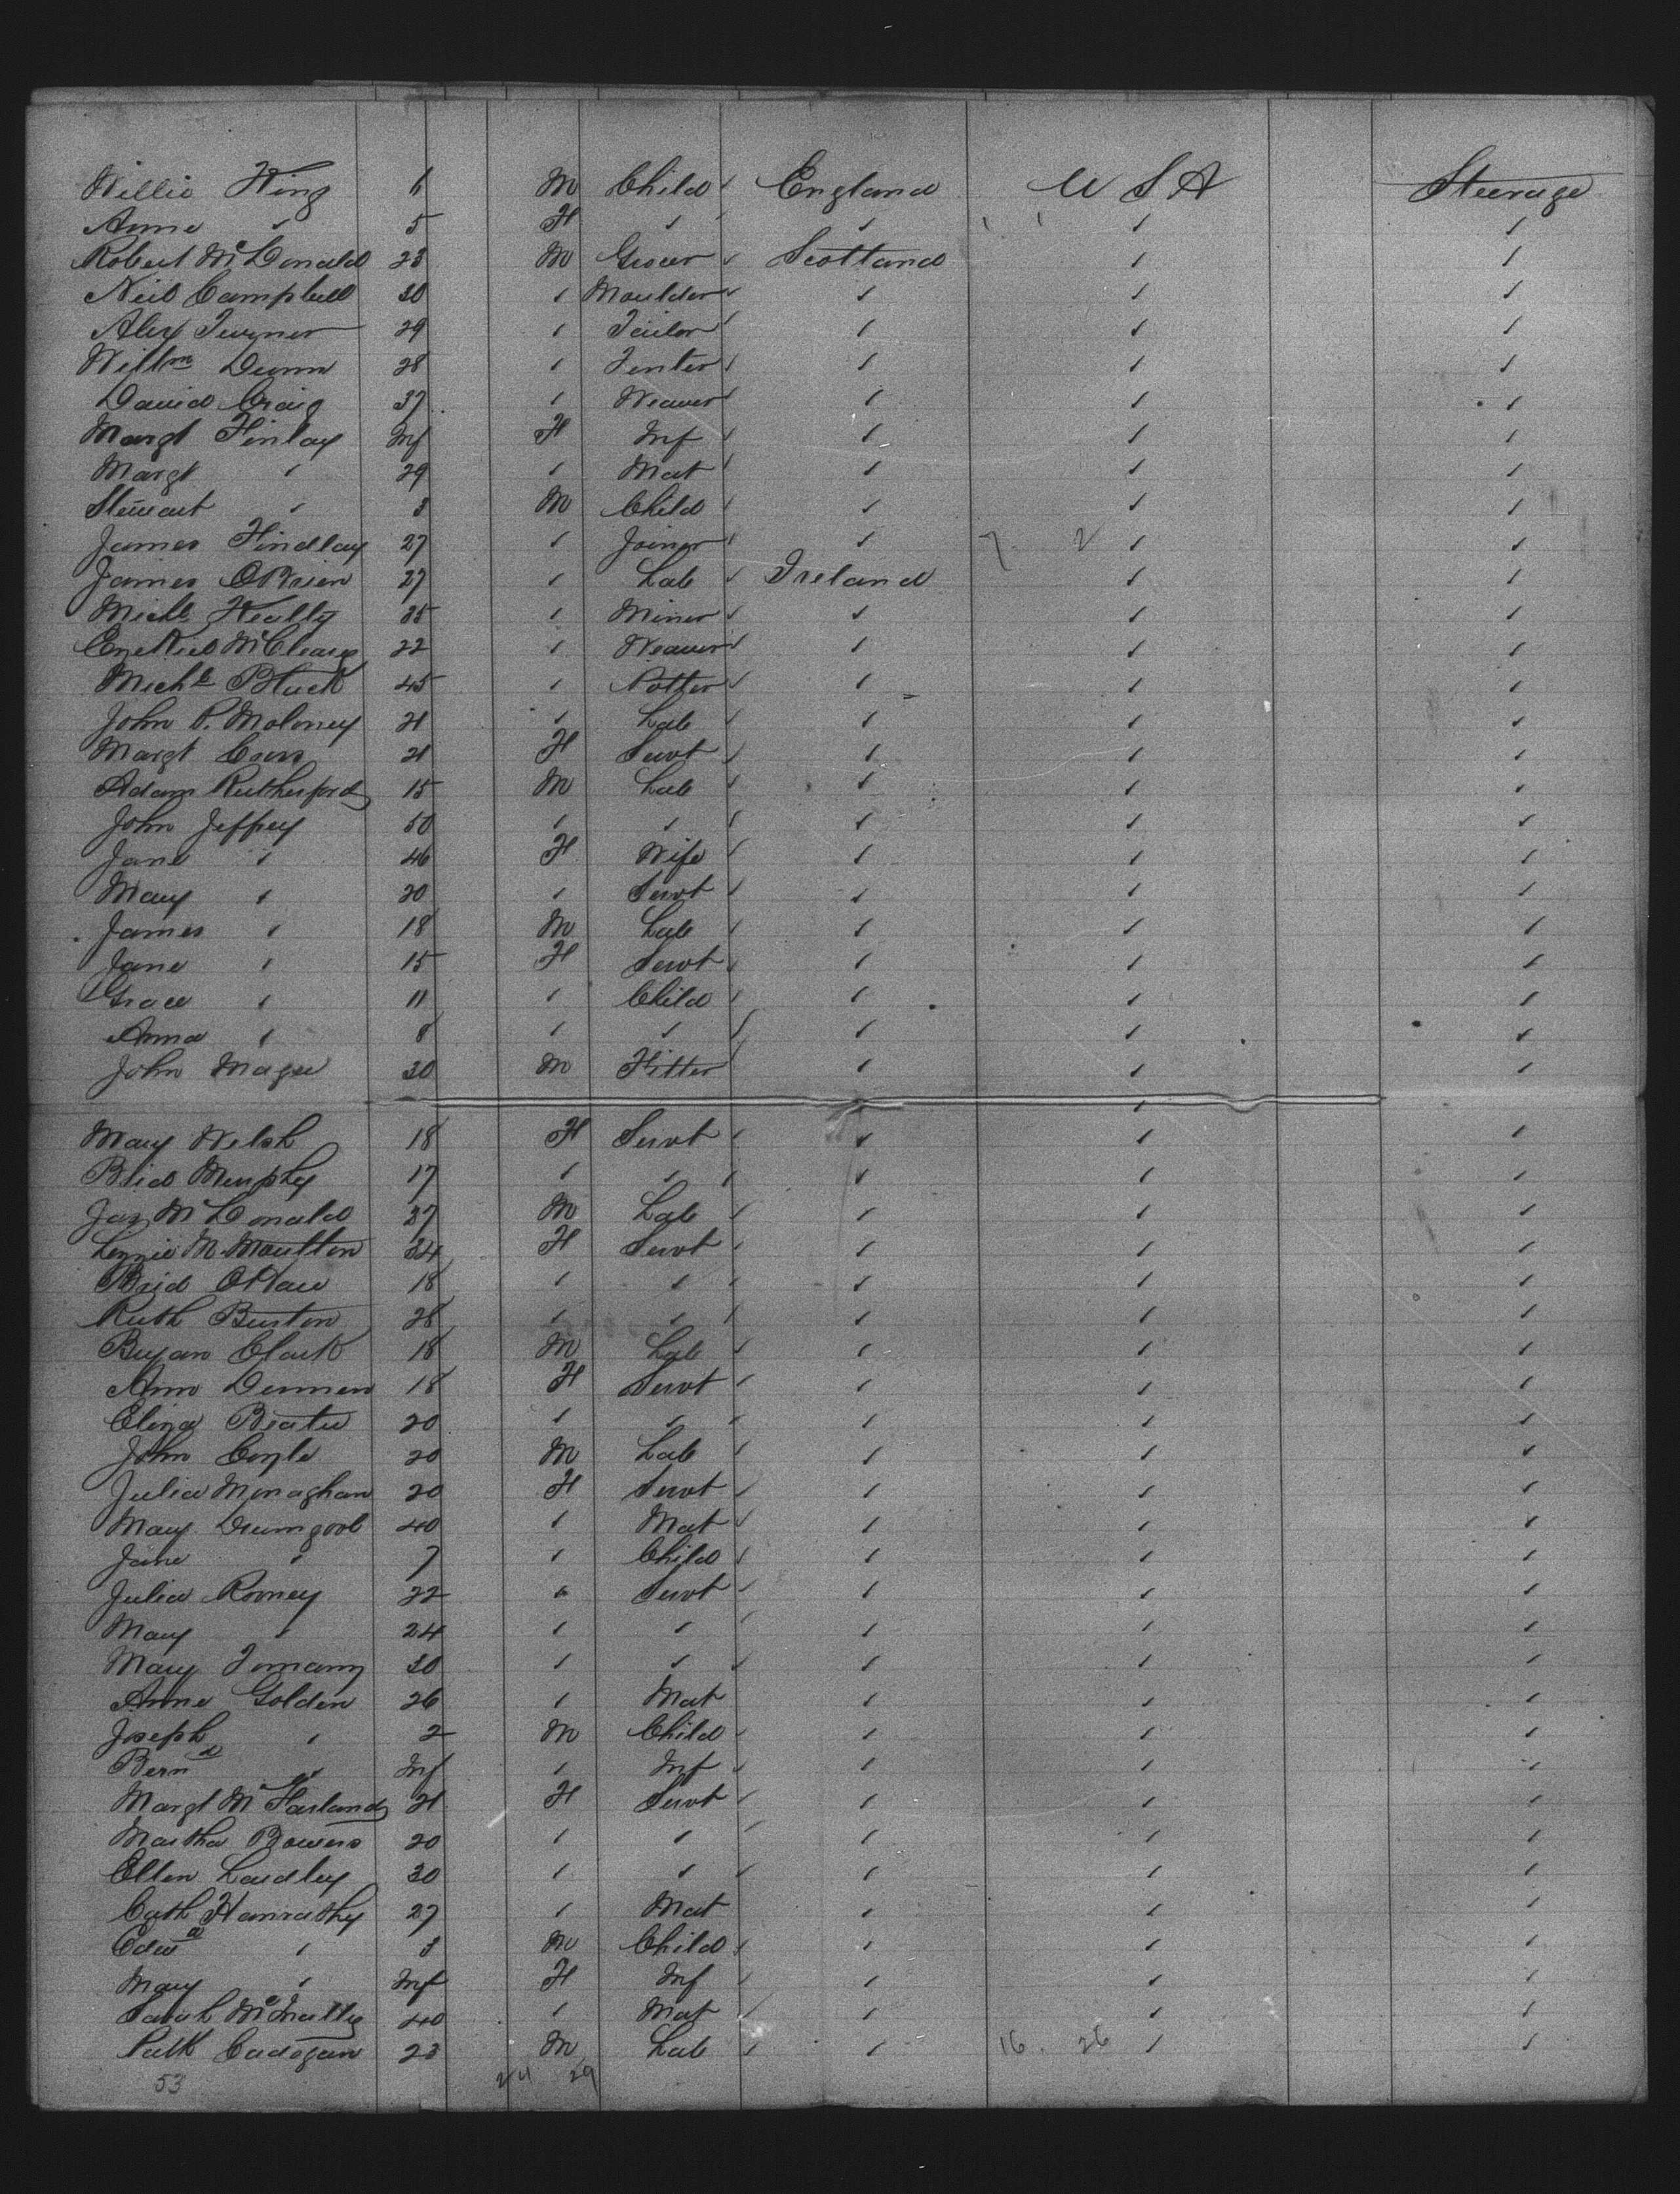 Willie King 6 M Child England U S A Steerage
Anne " 5 F " " " "
Robert McDonald 23 M Grocer Scotland " "
Neil Campbell 30 " Moulder " " "
Alex Turner 29 " Tailor " " "
Willm Dunn 28 " Tenter " " "
David Craig 37 " Weaver " " "
Margt Finlay Inf F Inf " " "
Margt " 29 " Mat " " "
Stewart " 3 M Child " " "
James Findlay 27 " Joiner " 7 2 " "
James OBrien 27 " Lab Ireland " "
Michl Kelly 35 " Miner " " "
Ezekiel McCleary 22 " Weaver " " "
Michl Black 45 " Potter " " "
John P. Moloney 21 " Lab " " "
Margt 21 F Servt " " "
Adam Rutherford 15 M Lab " " "
John Jeffrey 50 " " " " "
Jane " 46 F Wife " " "
Mary " 20 " Servt " " "
James " 18 M Lab " " "
Jane " 15 F Servt " " "
Grace " 11 " Child " " "
Anna " 8 " " " " "
John Magee 30 M Fitter " " "
Mary Welsh 18 F Servt " " "
Brid Murphy 17 " " " " "
Jas McDonald 27 M Lab " " "
Lizzie M. Moulton 24 F Servt " " "
Brid OHare 18 " " " " "
Ruth Burton 28 " " " " "
Bryan Clark 18 M Lab " " "
Ann Dennen 18 F Servt " " "
Eliza Beatie 20 " " " " "
John Coyle 20 M Lab " " "
Julia Monaghan 20 F Servt " " "
Mary Drumgool 40 " Mat " " "
Jane " 7 " Child " " "
Julia Rooney 22 " Servt " " "
Mary " 24 " " " " "
Mary Tomany 30 " " " " "
Anne Golden 26 " Mat " " "
Joseph " 2 M Child " " "
Bernd " Inf " Inf " " "
Margt McFarland 21 F Servt " " "
Martha Bowers 20 " " " " "
Ellen Laidley 30 " " " " "
Cath Hanrathy 27 " Mat " " "
Edwd " 3 M Child " " "
Mary " Inf F Inf " " "
Sarah McNally 40 " Mat " " "
Patk Cadogan 23 M Lab " 16. 26 " "
53 24 29